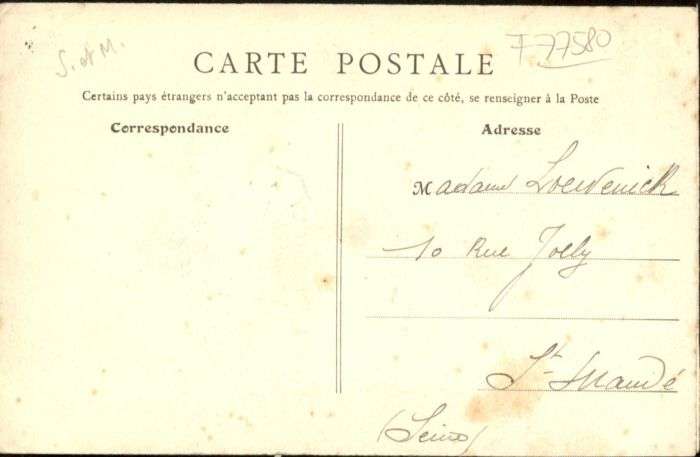 S. et M.
F 77580
CARTE POSTALE
Certains pays étrangers n'acceptant pas la correspondance de ce côté, se renseigner à la Poste
Correspondance
Adresse
Madame Loevenick
10 Rue Jolly
St Mandé
(Seine)